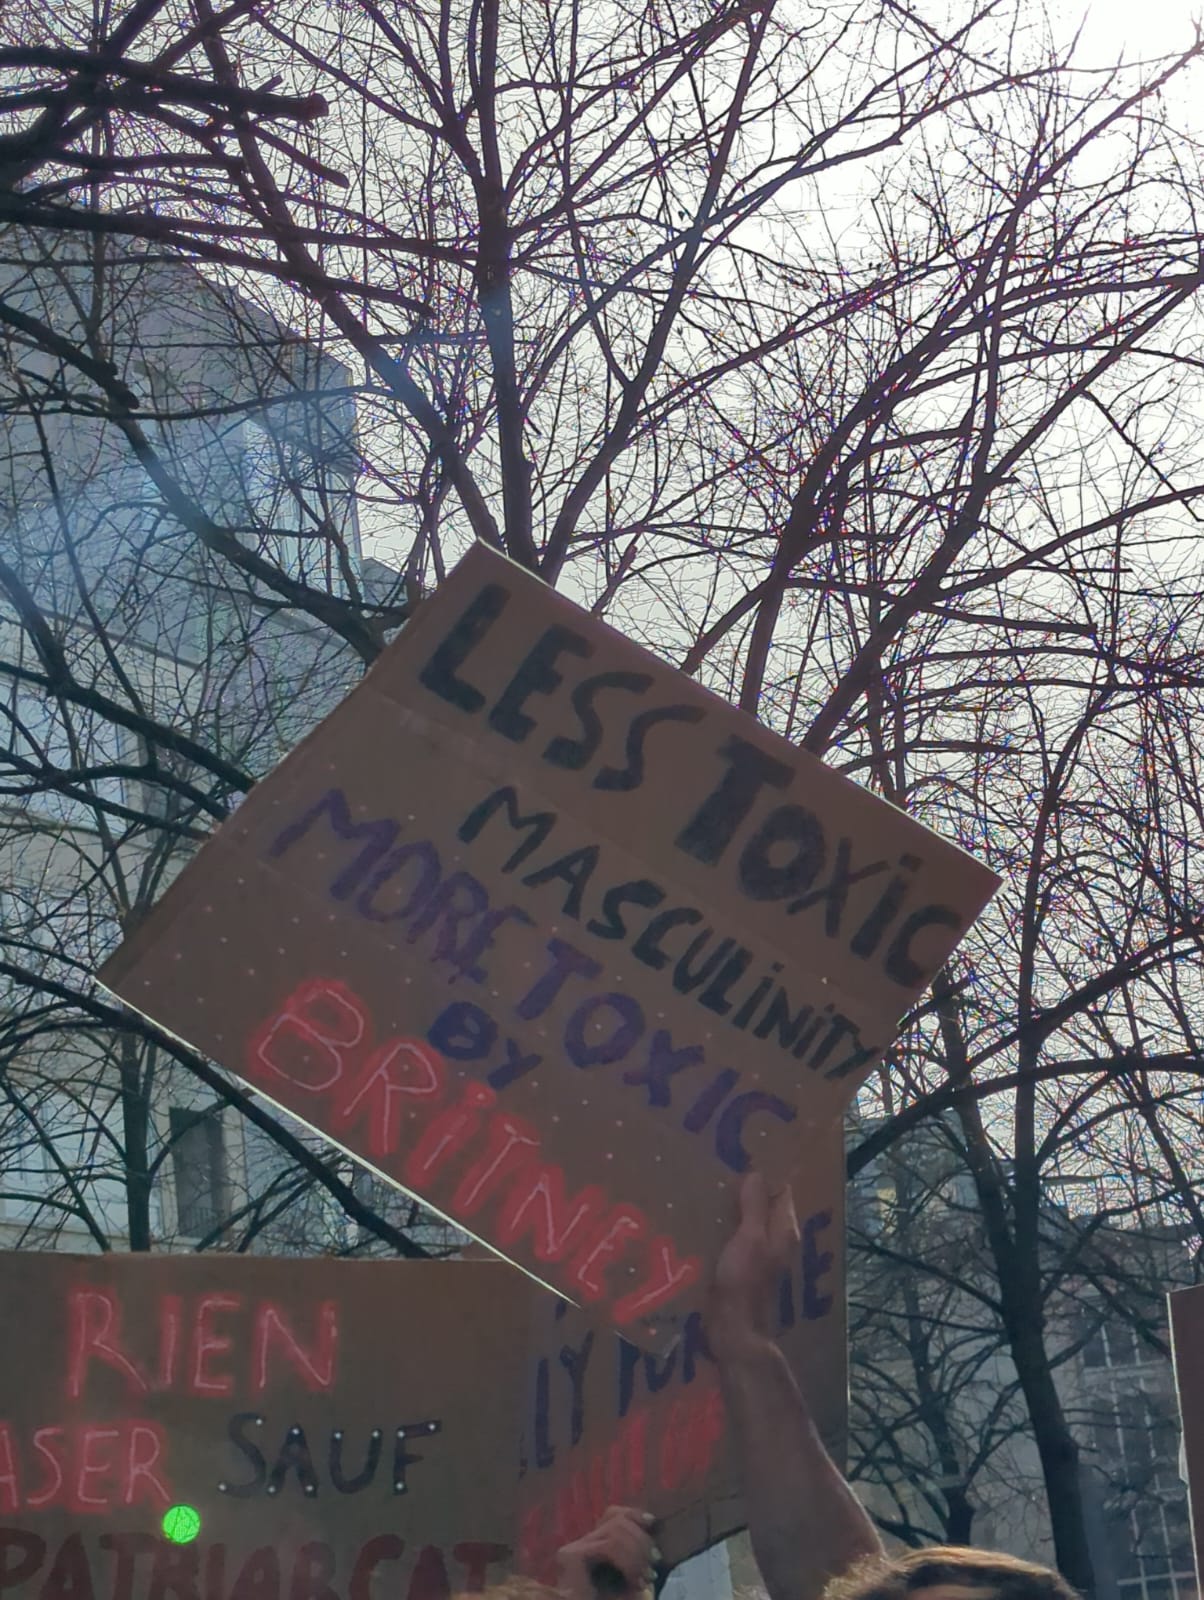 LESS TOXiC
MASCULiNiTY
MORE TOXIC
BY
BRiTNEY
RIEN
SAUF
PATRIARCAT